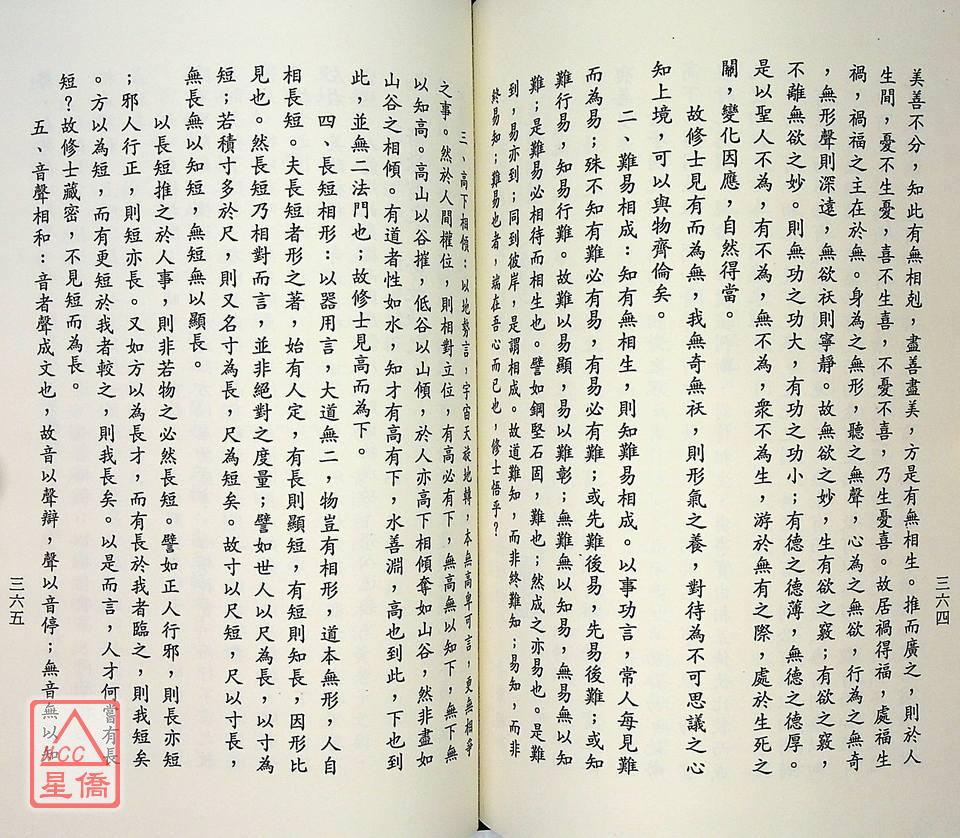 美善不分，知此有無相剋，盡善盡美，方是有無相生。推而廣之，則於人
生間，憂不生憂，喜不生喜，不憂不喜，乃生憂喜。故居禍得福，處福生
禍，禍福之主在於無。身為之無形，聽之無聲，心為之無欲，行為之無奇
，無形聲則深遠，無欲祅則寧靜。故無欲之妙，生有欲之竅；有欲之竅，
不離無欲之妙。則無功之功大，有功之功小；有德之德薄，無德之德厚。
是以聖人不為，有不為，無不為，眾不為生，游於無有之際，處於生死之
關，變化因應，自然得當。
故修士見有而為無，我無奇無祅，則形氣之養，對待為不可思議之心
知上境，可以與物齊倫矣。
二、難易相成：知有無相生，則知難易相成。以事功言，常人每見難
而為易；殊不知有難必有易，有易必有難；或先難後易，先易後難；或知
難行易，知易行難。故難以易顯，易以難彰；無難無以知易，無易無以知
難；是難易必相待而相生也。譬如鋼堅石固，難也；然成之亦易也。是難
到，易亦到；同到彼岸，是謂相成。故道難知，而非終難知；易知，而非
終易知；難易也者，端在吾心而已也，修士悟乎？
三六四
三、高下相傾：以地勢言，宇宙天旋地轉，本無高卑可言，更無相爭
之事。然於人間權位，則相對立位，有高必有下，無高無以知下，無下無
以知高。高山以谷摧，低谷以山傾，於人亦高下相傾奪如山谷，然非盡如
山谷之相傾。有道者性如水，知才有高有下，水善淵，高也到此，下也到
此，並無二法門也；故修士見高而為下。
四、長短相形：以器用言，大道無二，物豈有相形，道本無形，人自
相長短。夫長短者形之著，始有人定，有長則顯短，有短則知長，因形比
見也。然長短乃相對而言，並非絕對之度量；譬如世人以尺為長，以寸為
短；若積寸多於尺，則又名寸為長，尺為短矣。故寸以尺短，尺以寸長，
無長無以知短，無短無以顯長。
以長短推之於人事，則非若物之必然長短。譬如正人行邪，則長亦短
；邪人行正，則短亦長。又如方以為長才，而有長於我者臨之，則我短矣
。方以為短，而有更短於我者較之，則我長矣。以是而言，人才何嘗有長
短？故修士藏密，不見短而為長。
五、音聲相和：音者聲成文也，故音以聲辯，聲以音停；無音無以知
三六五
NCC
星僑